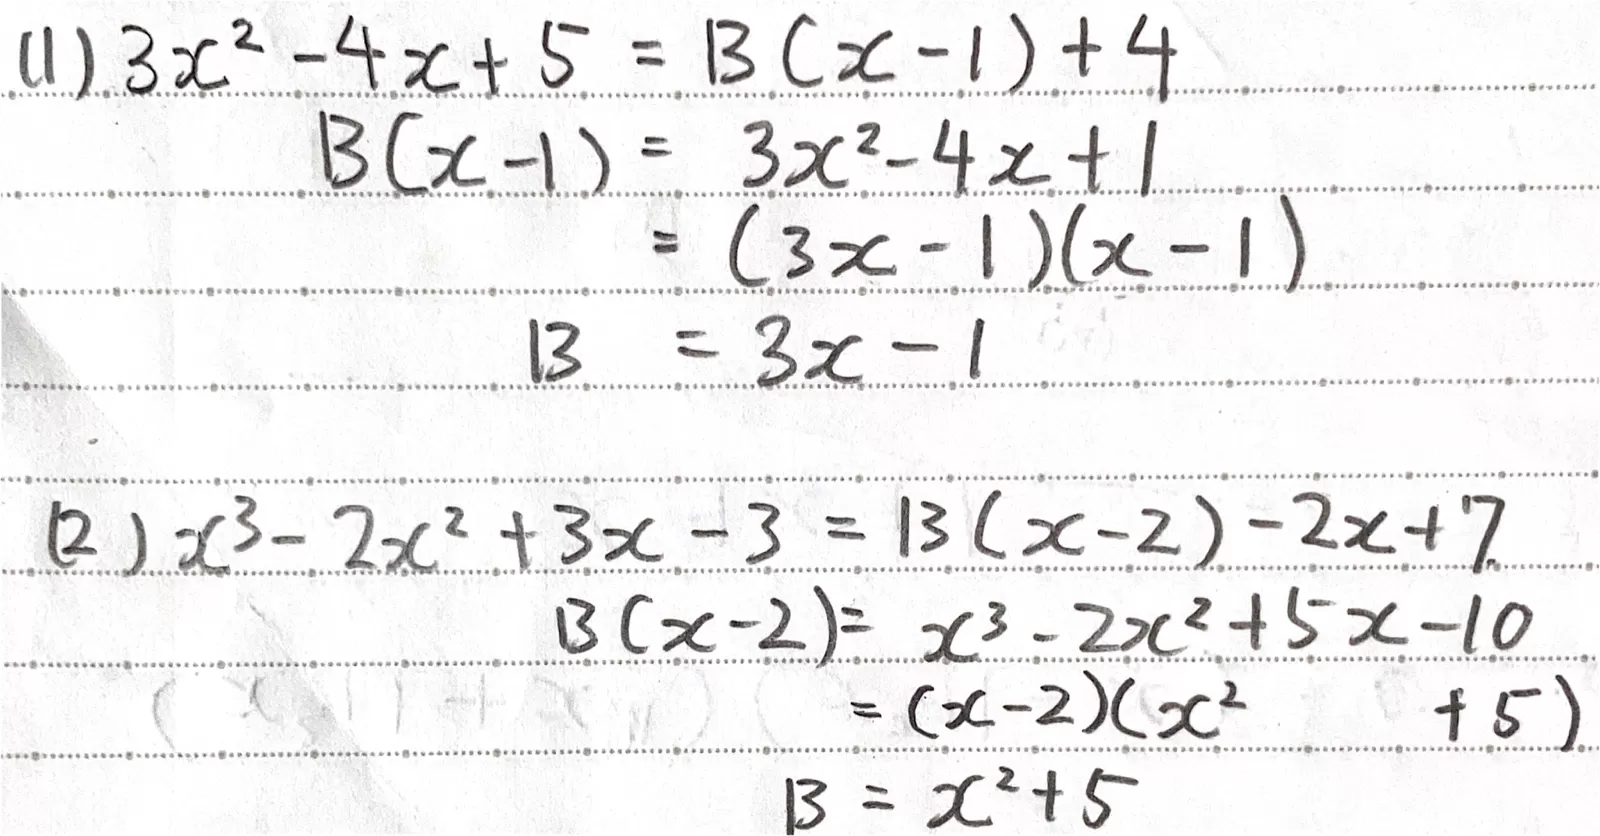 (1) 3x² - 4x + 5 = B(x - 1) + 4
B(x - 1) = 3x² - 4x + 1
= (3x - 1)(x - 1)
B = 3x - 1
(2) x³ - 2x² + 3x - 3 = B(x - 2) - 2x + 7
B(x - 2) = x³ - 2x² + 5x - 10
= (x - 2)(x² + 5)
B = x² + 5